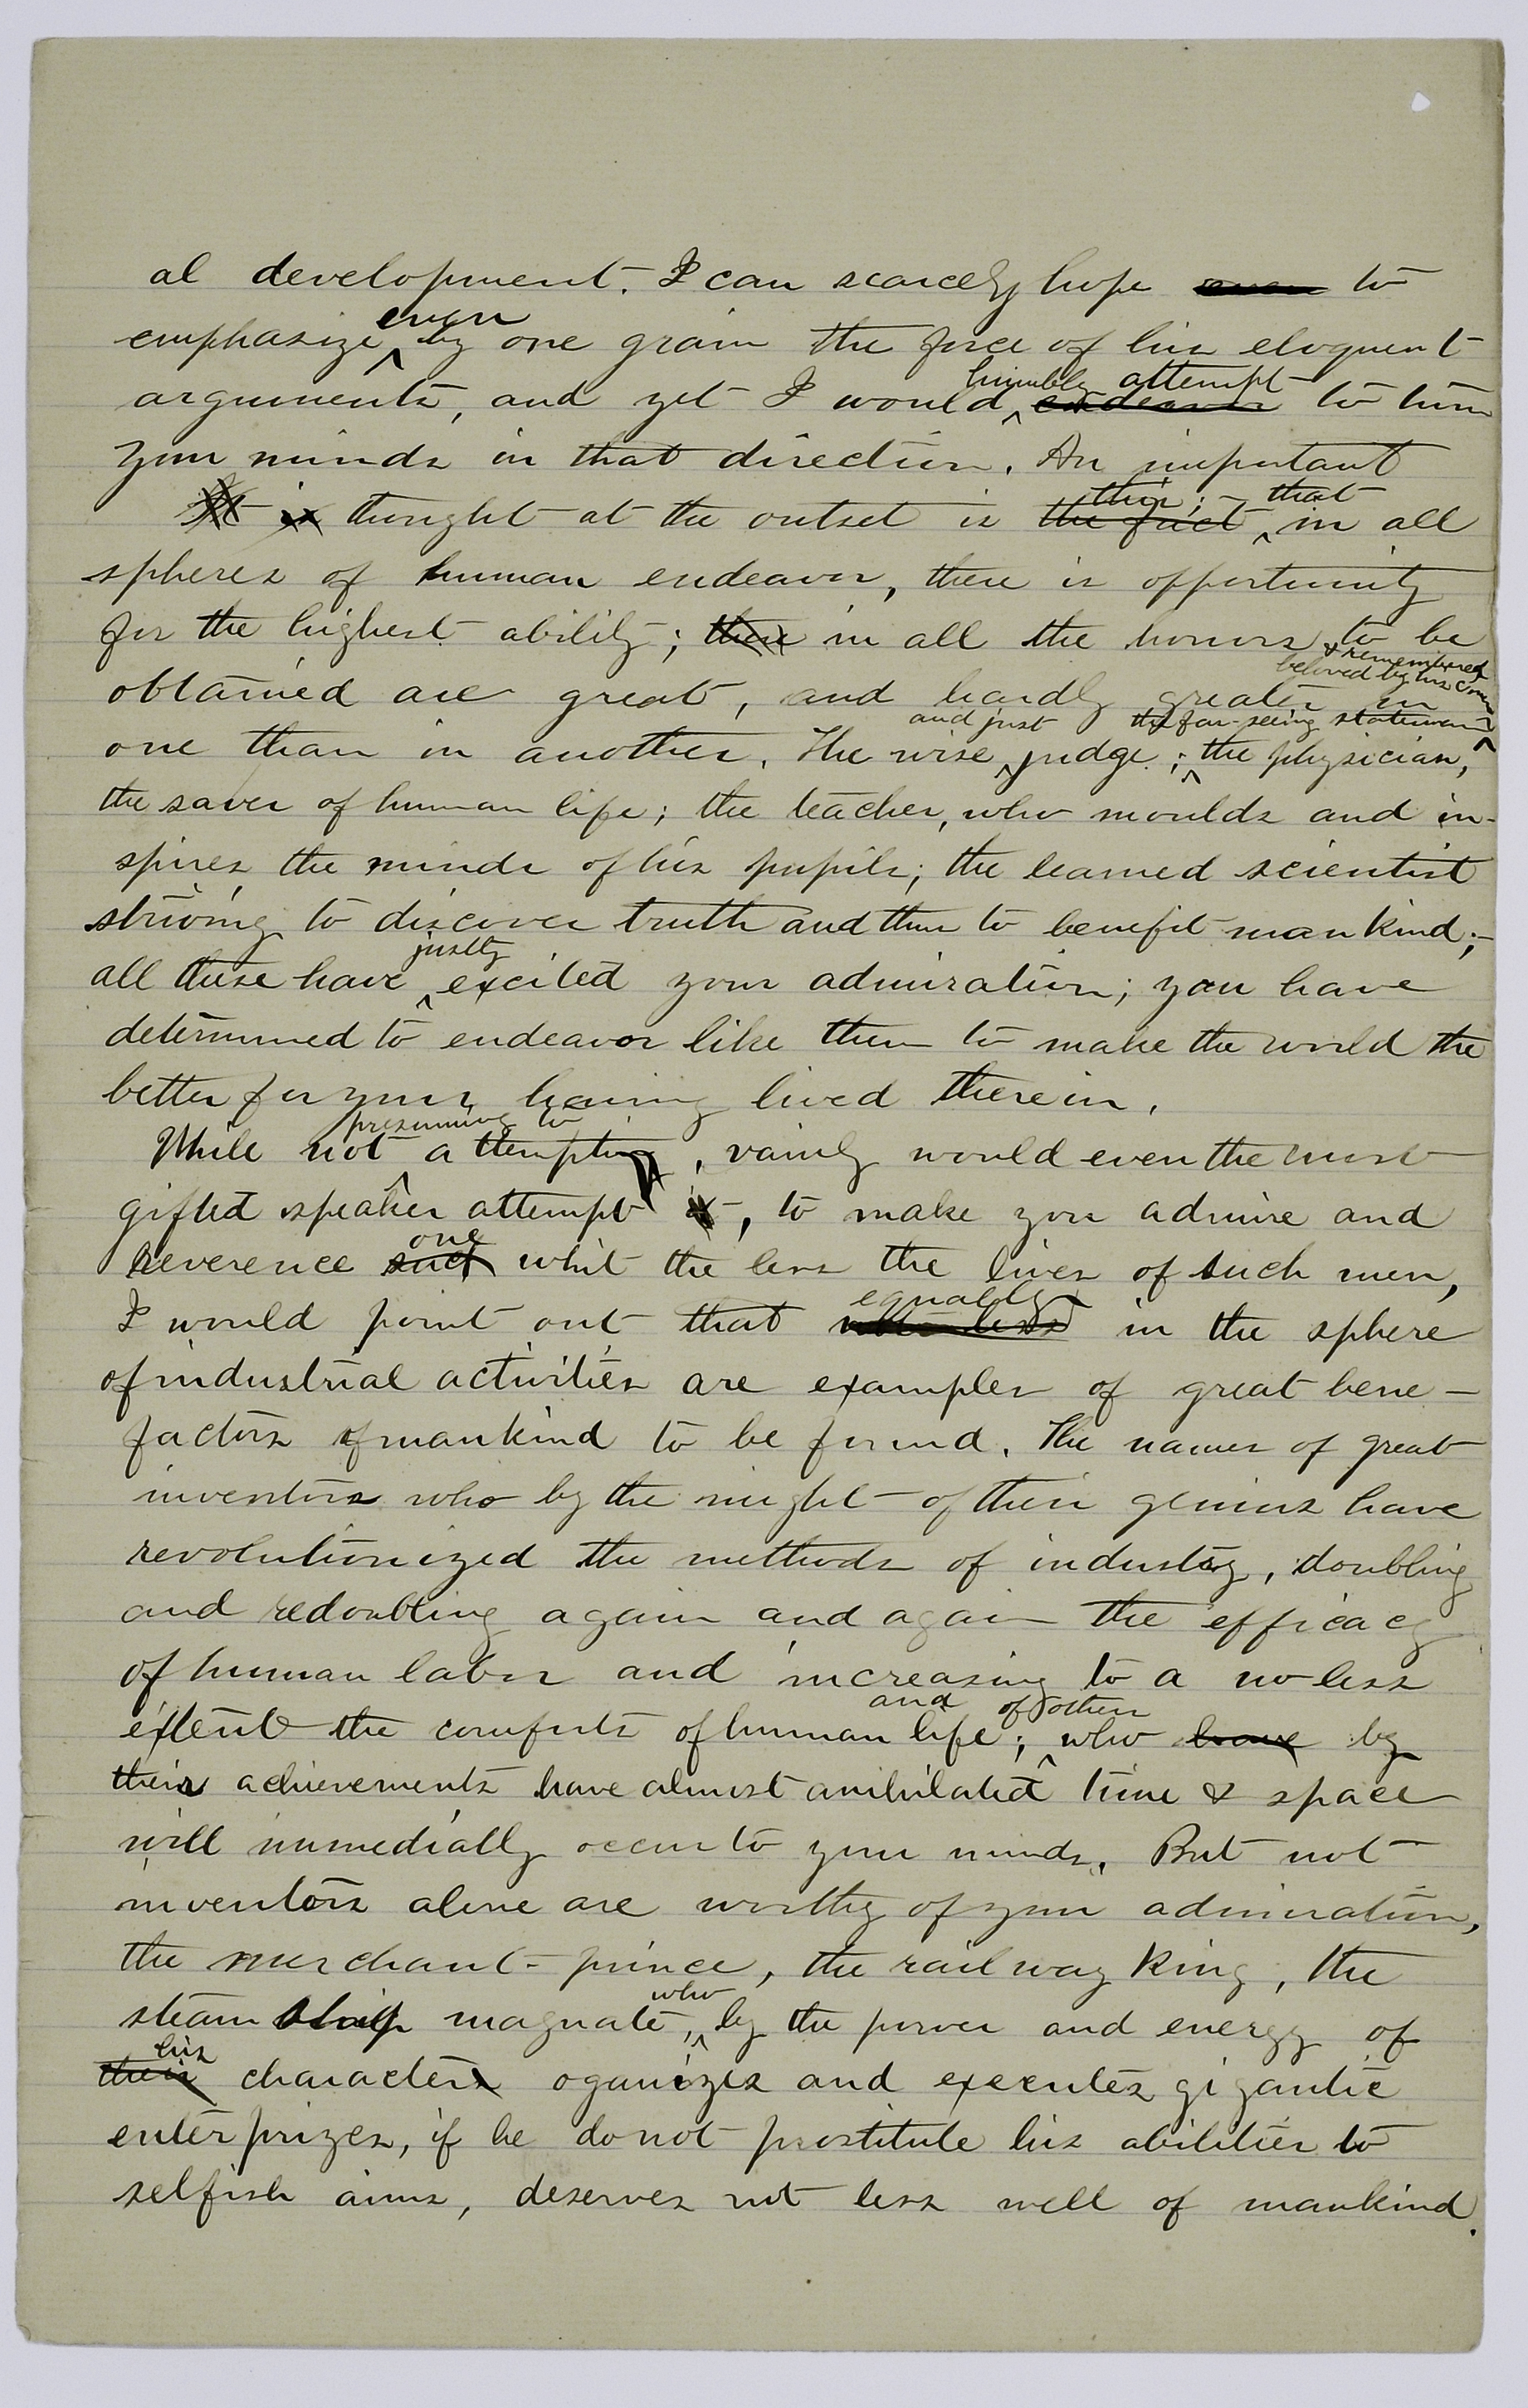 al development. I can scarcely hope even to
emphasize even by one grain the force of his eloquent
arguments, and yet I would humbly attempt endeavor to turn
your minds in that direction. An important
It is thought at the outset is the fact this; - that in all
spheres of human endeavor, there is opportunity
for the highest ability; there in all the honors to be
obtained are great, and hardly greater in
& remembered
beloved by his
one than in another. The wise and just judge; the far-seeing statesman; the physician,
the saver of human life; the teacher, who moulds and in-
spires the minds of his pupils; the learned scientist
striving to discover truth and thus to benefit mankind;-
all these have justly excited your admiration; you have
determined to endeavor like them to make the world the
better for your having lived therein.
While not presuming to attempting, vainly would even the most
gifted speaker attempt it, to make you admire and
reverence one whit the less the lives of such men,
I would point out that equally in the sphere
of industrial activities are examples of great bene-
factors of mankind to be found. The names of great
inventors who by the might of their genius have
revolutionized the methods of industry, doubling
and redoubling again and again the efficacy
of human labor and increasing to a no less
extent the comforts of human life; and of others who have by
their achievements have almost anihilated time & space
will immedially occur to your minds. But not
inventors alone are worthy of your admiration,
the merchant-prince, the railway king, the
steam ship magnate, who by the power and energy of
their his characters oganizes and executes gigantic
enterprizes, if he do not prostitute his abilities to
selfish aims, deserves not less well of mankind.